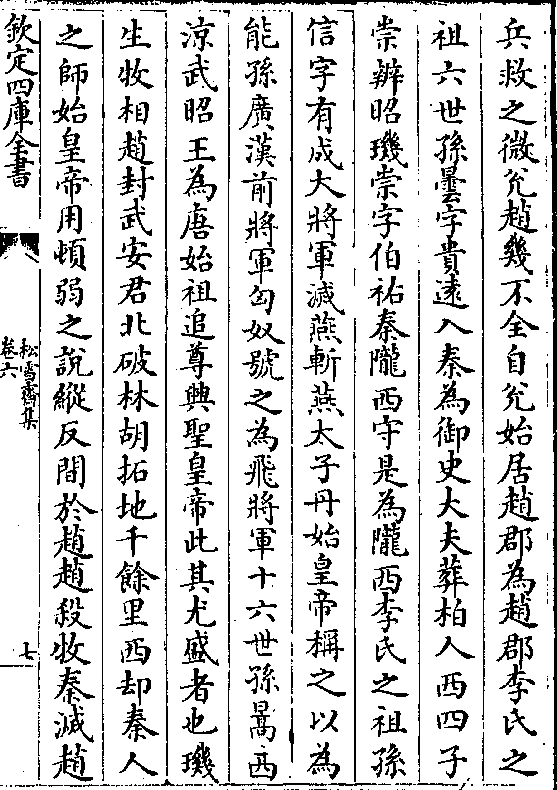 兵救之微兊趙幾不全自兊始居趙郡為趙郡李氏之
祖六世孫曇字貴逺入秦為御史大夫葬柏人西四子
崇辨昭璣崇字伯祐秦隴西守是為隴西李氏之祖孫
信字有成大將軍滅燕斬燕太子丹始皇帝稱之以為
能孫廣漢前將軍匈奴號之為飛將軍十六世孫暠西
涼武昭王為唐始祖追尊興聖皇帝此其尤盛者也璣
生牧相趙封武安君北破林胡拓地千餘里西却秦人
之師始皇帝用頓弱之説縱反間於趙趙殺牧秦滅趙
欽定四庫全書
松雪齋集
卷六
七